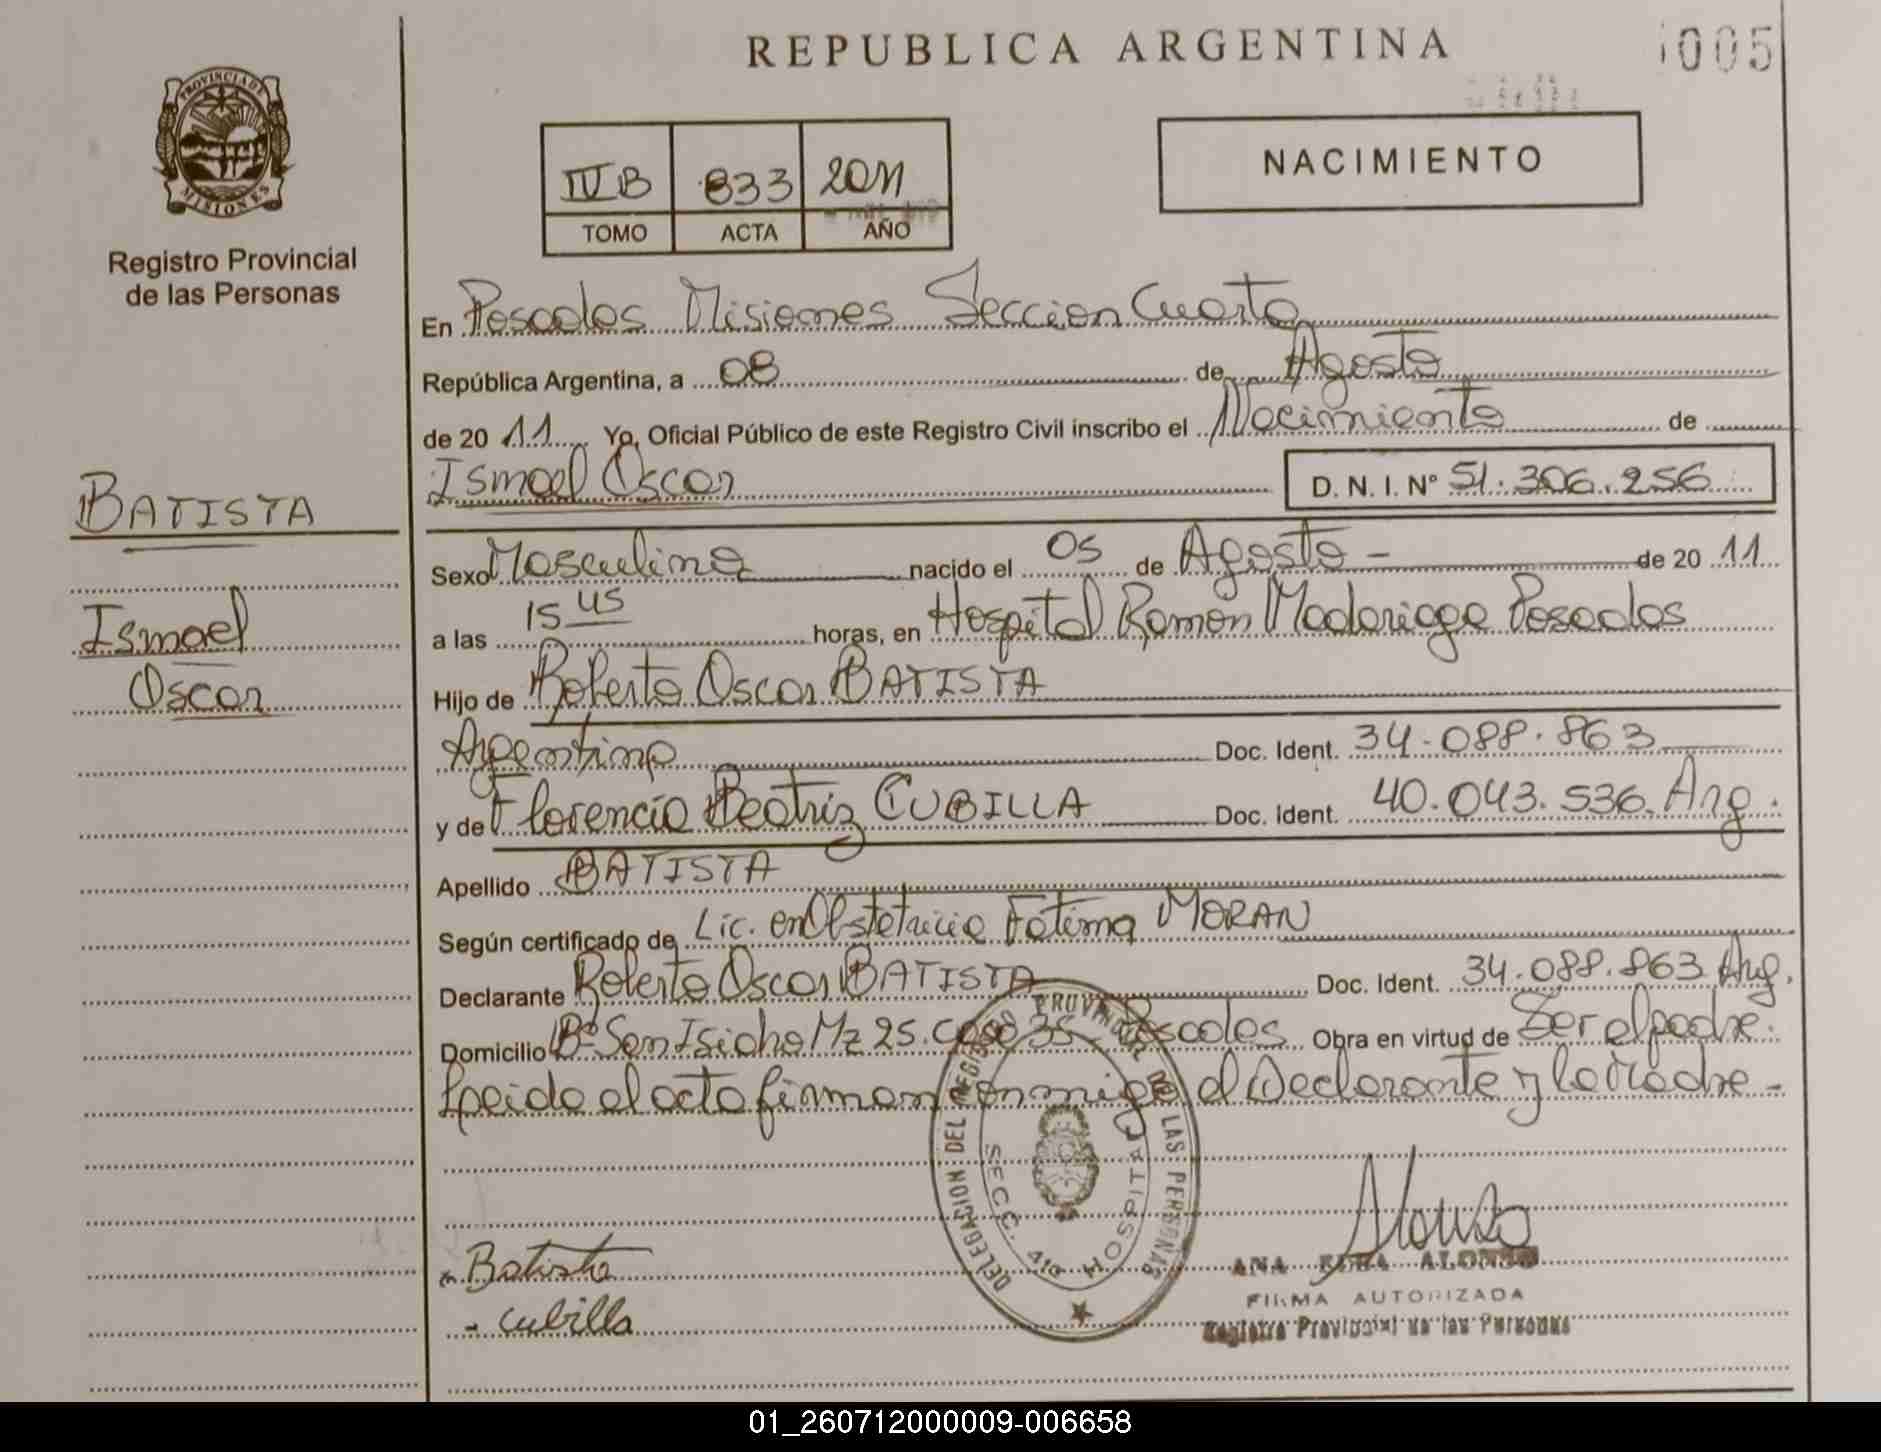 REPUBLICA ARGENTINA
005
PROVINCIA DE
MISIONES
Registro Provincial
de las Personas
IV B 833 2011
TOMO ACTA AÑO
NACIMIENTO
En Posadas Misiones Seccion Cuarta
República Argentina, a 08 de Agosto
de 20 11 Yo, Oficial Público de este Registro Civil inscribo el Nacimiento de
Ismael Oscar D. N. I. N° 51.306.256
BATISTA
Sexo Masculino nacido el 05 de Agosto - de 20 11
Ismael
Oscar
a las 15 45 horas, en Hospital Ramon Madariaga Posadas
Hijo de Roberto Oscar BATISTA
Argentino Doc. Ident. 34.088.863
y de Florencia Beatriz CUBILLA Doc. Ident. 40.043.536. Arg.
Apellido BATISTA
Según certificado de Lic. en Obstetricia Fatima MORAN
Declarante Roberto Oscar BATISTA Doc. Ident. 34.088.863 Arg.
Domicilio B° San Isidro Mz 25. Casa 35 - Posadas Obra en virtud de Ser el padre.
Leido el acta firman conmigo el Declarante y la Madre -
DELEGACION DEL REGISTRO PROVINCIAL DE LAS PERSONAS
SECC. 4ta HOSPITAL
Batista
- Cubilla
Alonso
ANA ALONSO
FIRMA AUTORIZADA
Registro Provincial de las Personas
01_260712000009-006658